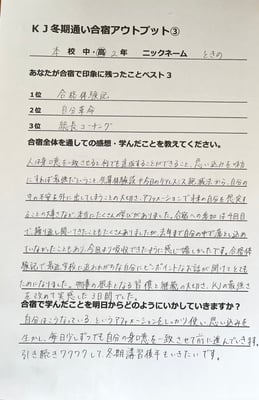 KJ冬期通い合宿アウトプット③
本校 中・高 2年 ニックネーム ときの
あなたが合宿で印象に残ったことベスト3
1位 合格体験記
2位 自分革命
3位 コーチング
合宿全体を通しての感想・学んだことを教えてください。
人は身口意を一致させると何でも達成することができること、思い込みを味方
にすれば最強だということ、
の中の不安を外に出してしまうことの大切さ、アファメーションで未来の自分を
ることの大事さなど本当にたくさんの学びがありました。合宿への参加は今回
で繰り返し聞いてきたこともたくさんありましたが、去年まで自分の中で落とし込め
ていなかったこともあり、今回より吸収できたように感じ嬉しかったです。合格体
験記で最近学校に追われがちな自分にピンポイントなお話が聞けてとても
ためになりました。物事の基本となる習慣と継続の大切さ、KJの最強さ
を改めて実感した3日間でした。
合宿で学んだことを明日からどのようにいかしていきますか?
自分はこうなっている、というアファメーションをしっかり使い思い込みを
生かし、毎日少しずつでも自分の身口意を一致させて前に進んでいきます。
引き続きワクワクして冬期講習後半もいきたいです。